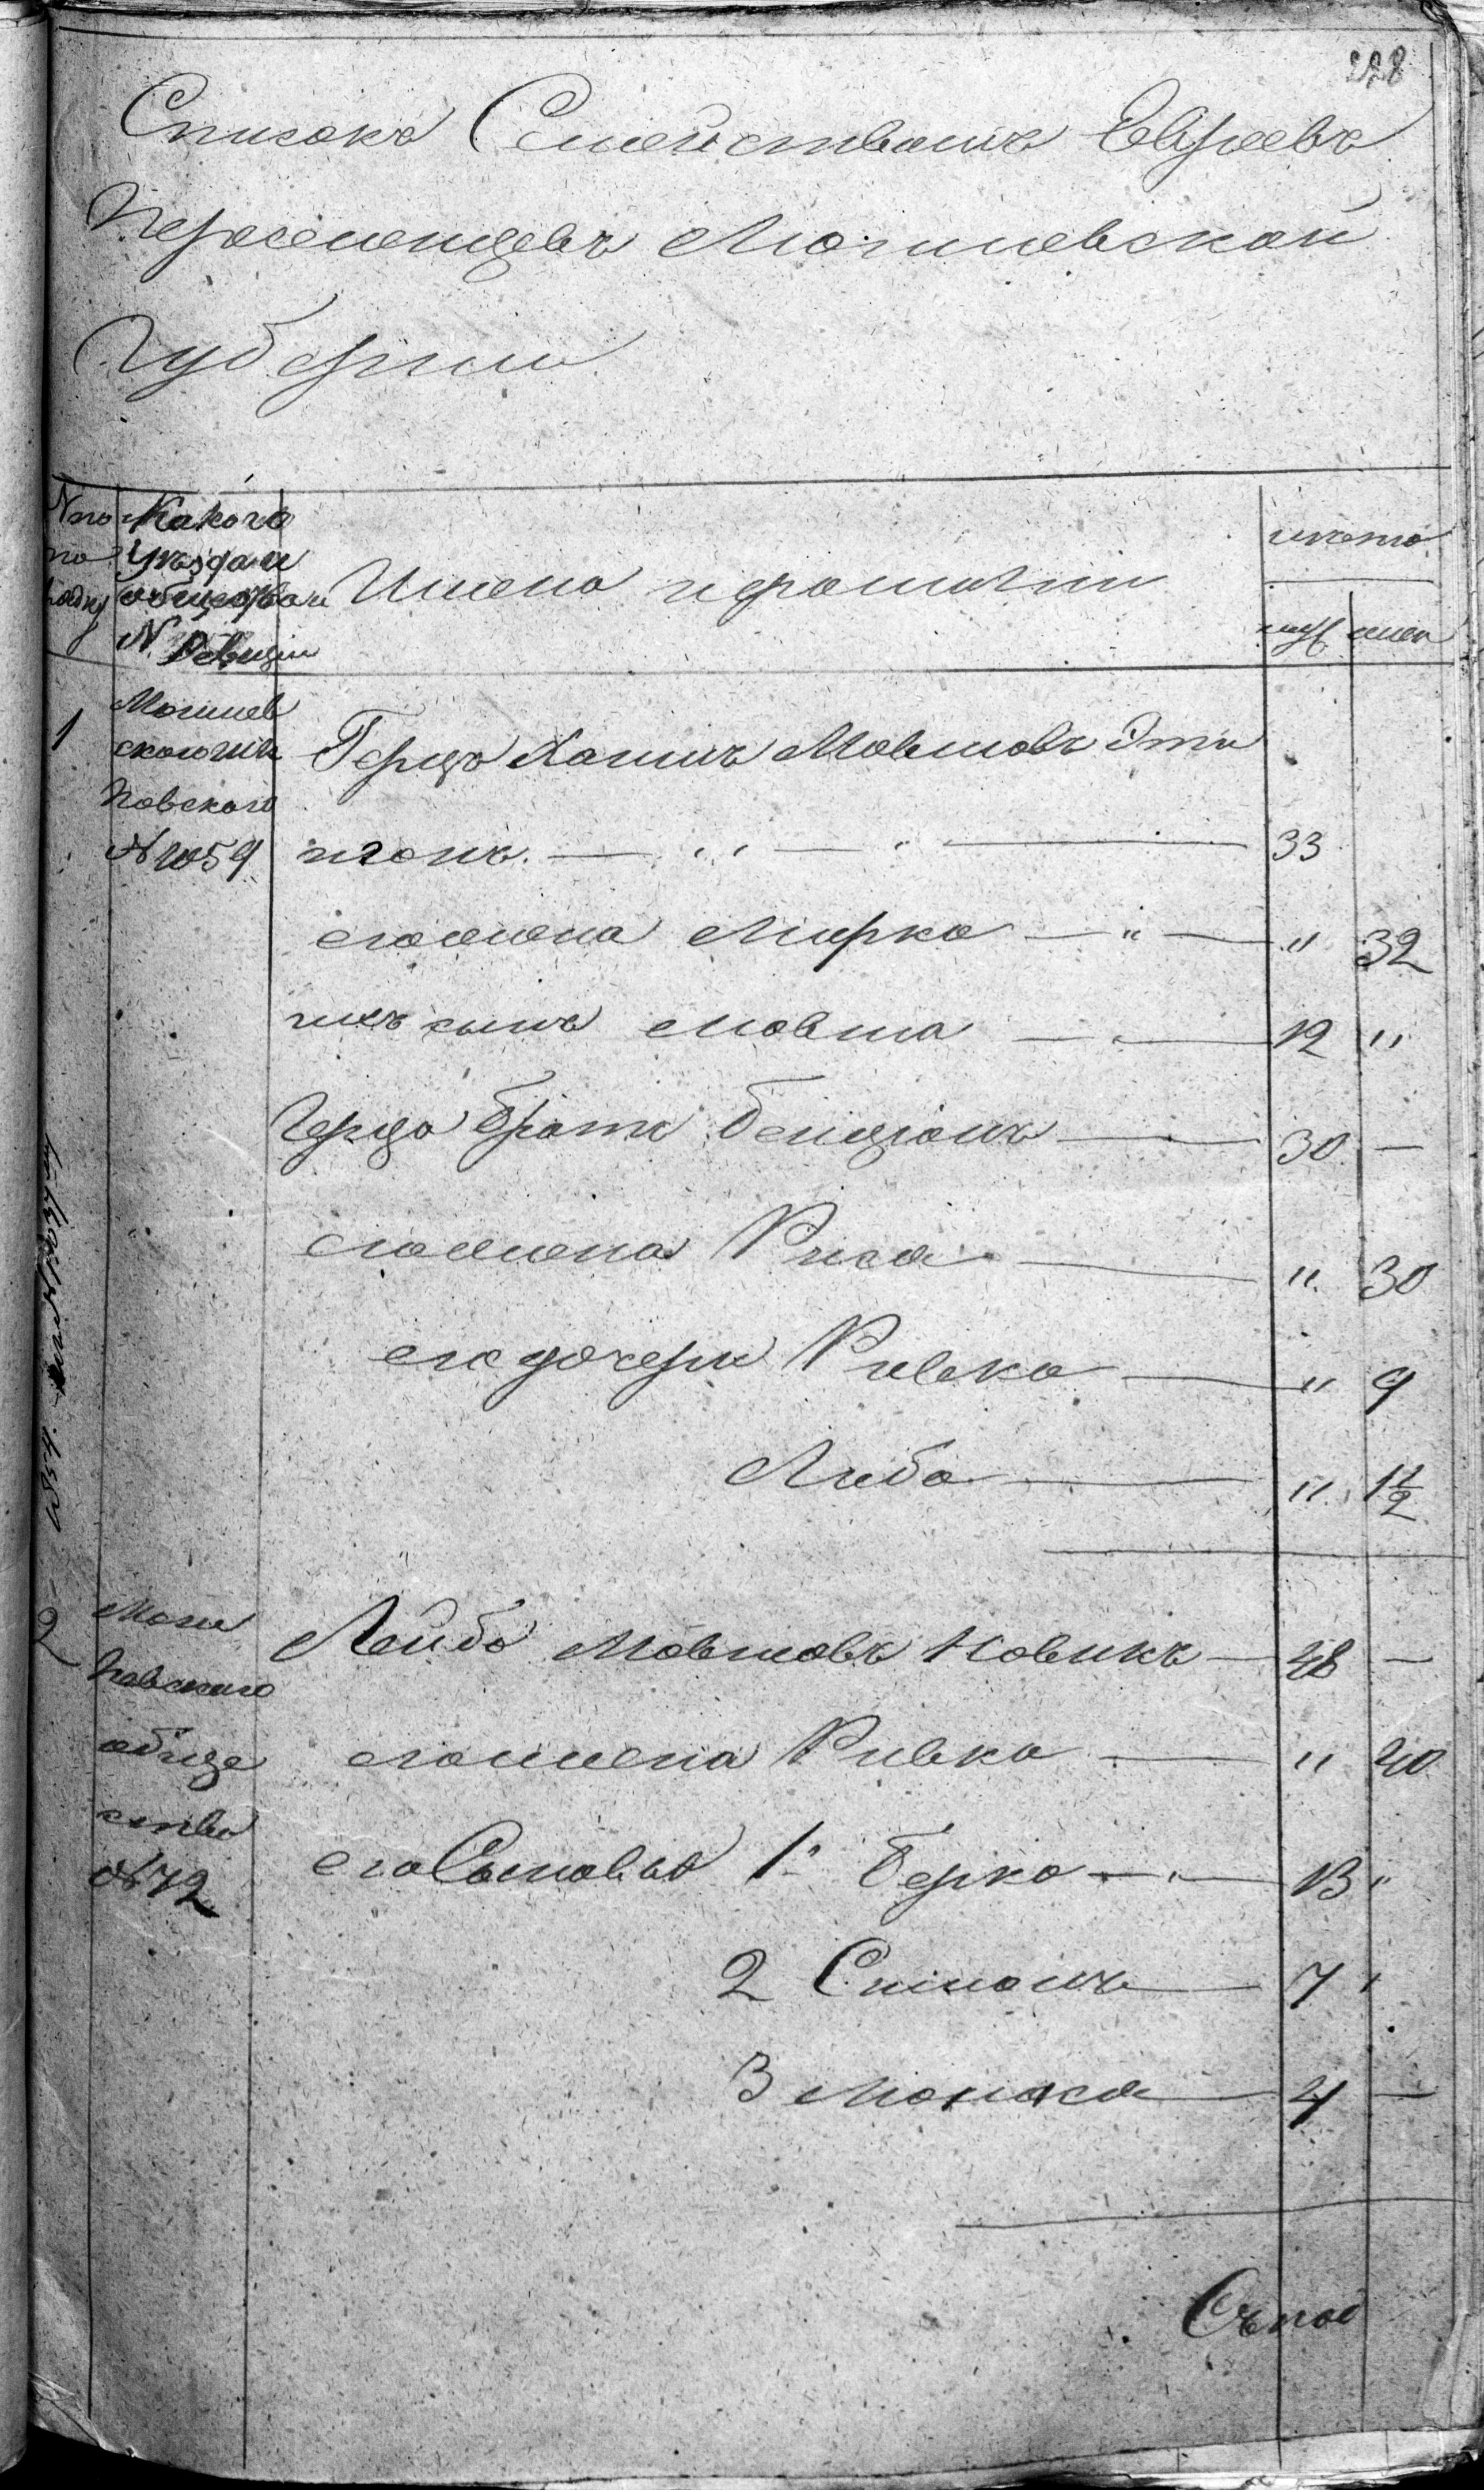 228
Списокъ Семействамъ Евреевъ
Переселенцевъ Могилевской
Губернии
№ по Какого
по уѣзда и
рядку общества и
№ Ревизіи
Имена и фамиліи
лѣта
муж жен
1 Могилев
ского Шк
ловского
№ 1059
Герцъ Хаимъ Мовшовъ Эти
нгонъ. — „ — „ — 33
его жена Мирка — „ — „ 32
ихъ сынъ Мовша — 12 „
Герца братъ Бенціонъ — 30 —
его жена Риса — „ 30
его дочери Ривка — „ 9
Либа — „ 1½
2 Моги
левского
обще
ства
№ 72
Лейба Мовшовъ Новикъ — 48 —
его жена Ривка — „ 40
его Сыновья 1й Берка — „ — 13 „
2 Симонъ — 7 „
3 Монаса — 4 —